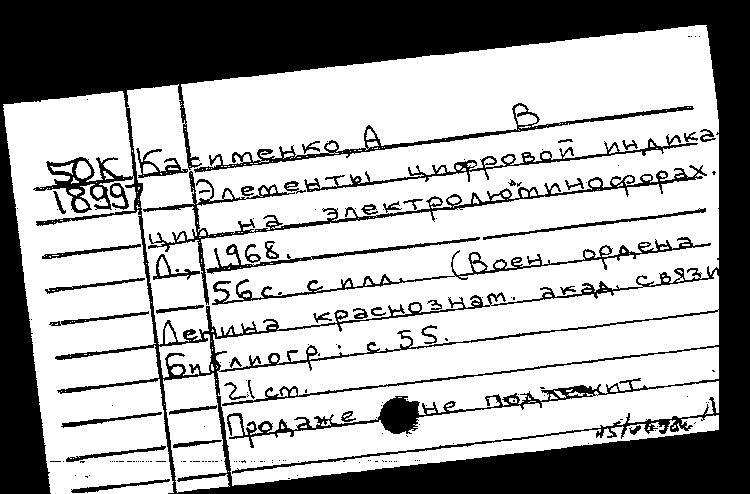 В
50К Касименко, А
18997 Элементы цифровой индика-
ции на электролюминофорах.
Л., 1968.
56с. с илл. (Воен. ордена
Ленина краснознам. акад. связи
Библиогр: с. 55.
21 cm.
Продаже не подлежит.